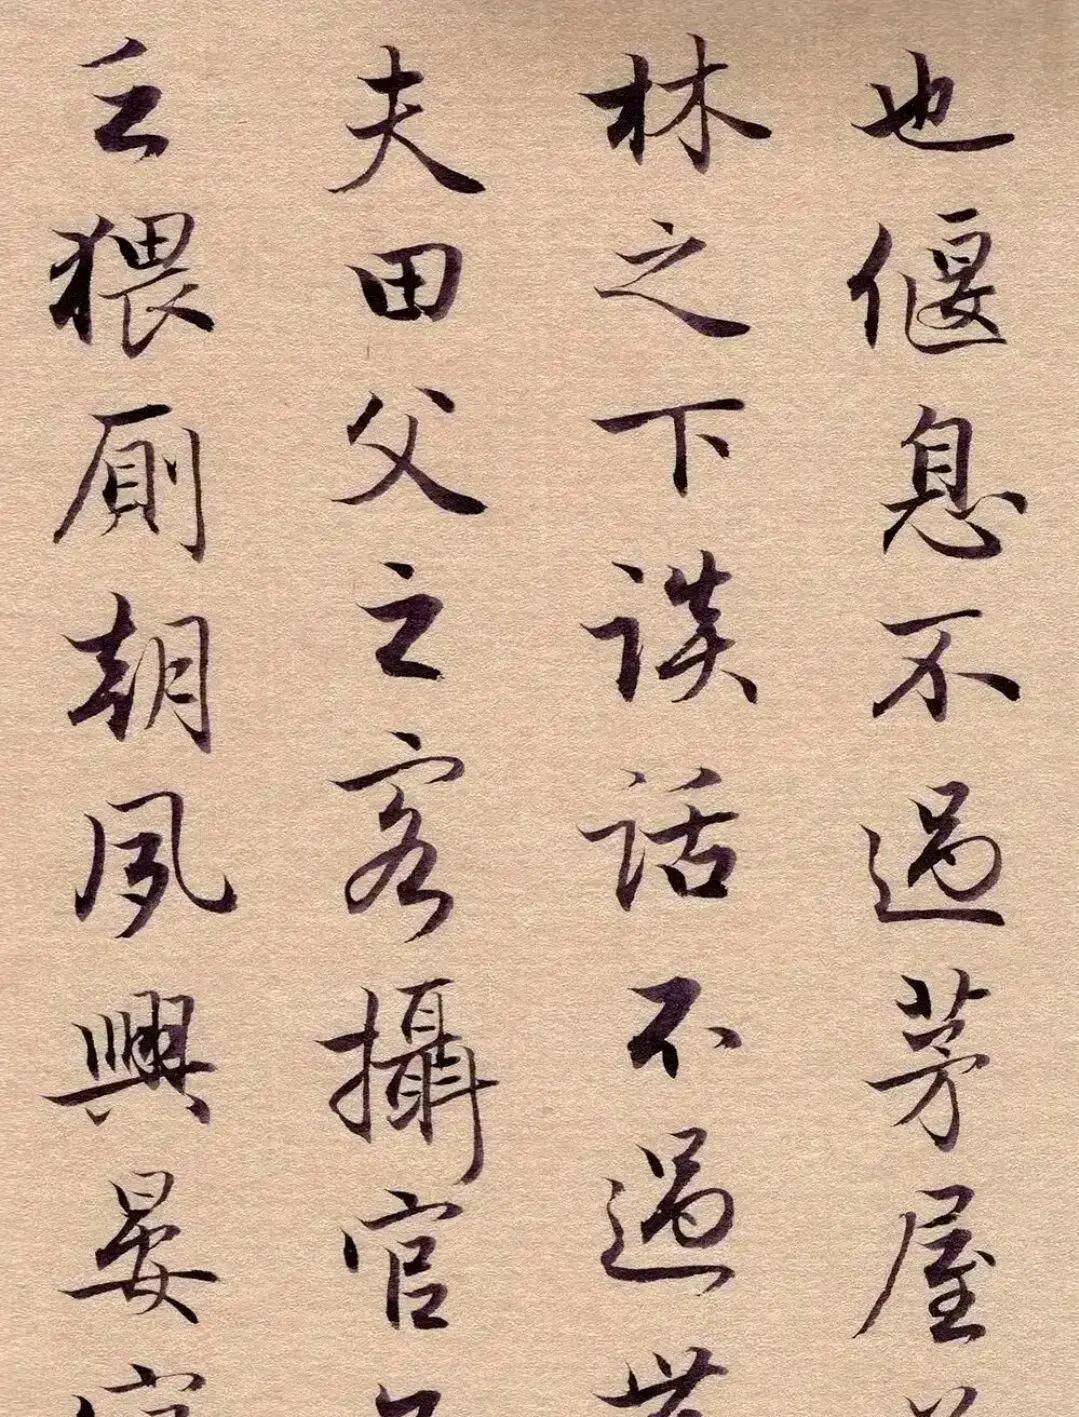 也偃息不過茅屋
林之下談話不過
夫田父之客攝官
之猥厠朝夙興晏